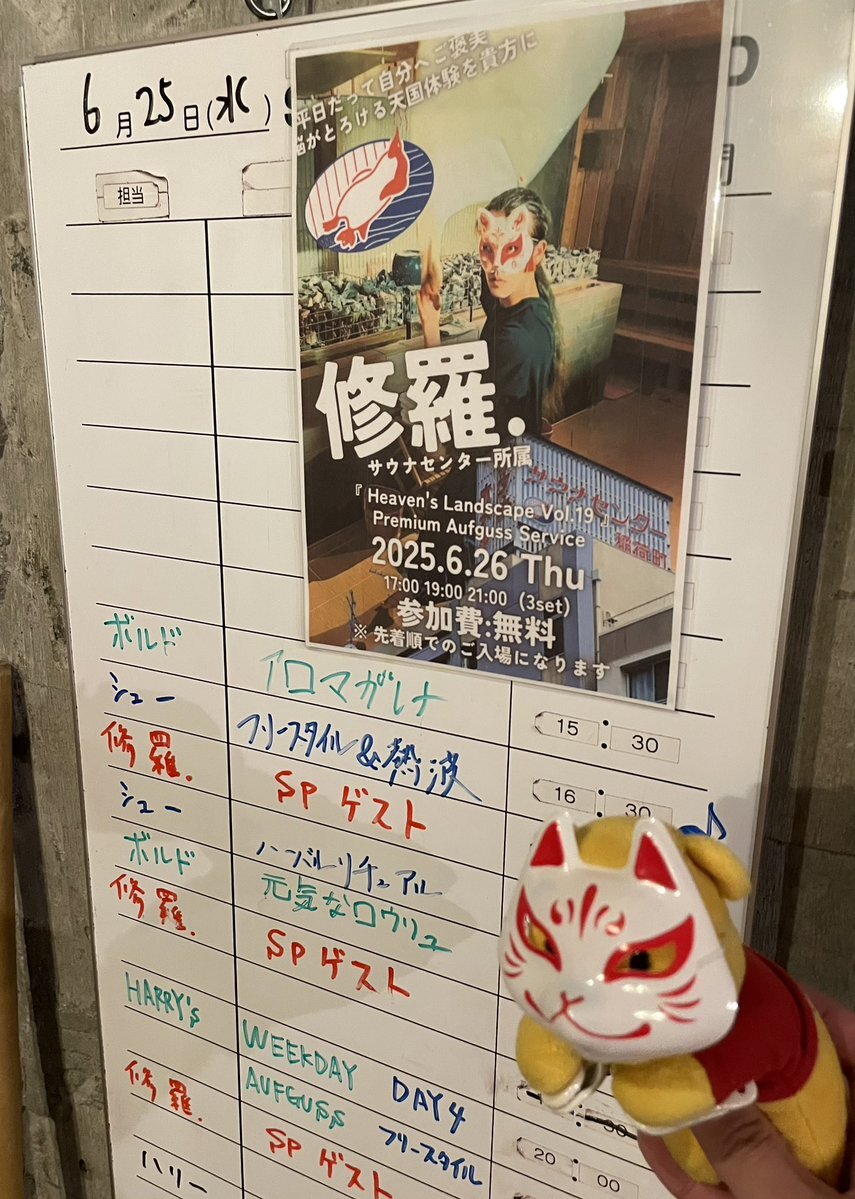 6月25日(水)
担当
平日だって自分へご褒美
脳がとろける天国体験を貴方に
修羅.
サウナセンター所属
『 Heaven's Landscape Vol.19 』
Premium Aufguss Service
2025.6.26 Thu
17:00 19:00 21:00 (3set)
参加費:無料
※ 先着順でのご入場になります
サウナセンター
稲荷町
ボルド アロマガレナ 15:30
シュー フリースタイル&熱波 16:30
修羅. SPゲスト
シュー ハーバルリチュアル
ボルド 元気なロウリュ
修羅. SPゲスト
HARRY's WEEKDAY AUFGUSS DAY4
フリースタイル
修羅. SPゲスト 20:00
ハリー